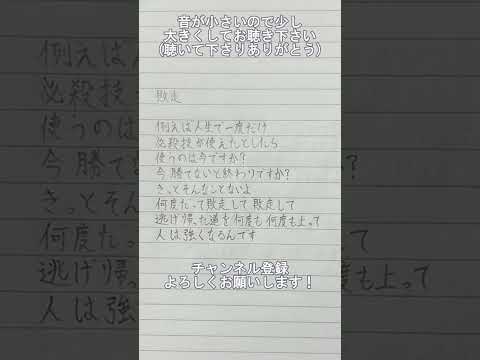 音が小さいので少し
大きくしてお聴き下さい
(聴いて下さりありがとう)
敗走
例えば人生で一度だけ
必殺技が使えたとしたら
使うのは今ですか?
今勝てないと終わりですか?
きっとそんなことないよ
何度だって敗走して敗走して
逃げ帰った道を何度も何度も上って
人は強くなるんです
チャンネル登録
よろしくお願いします!